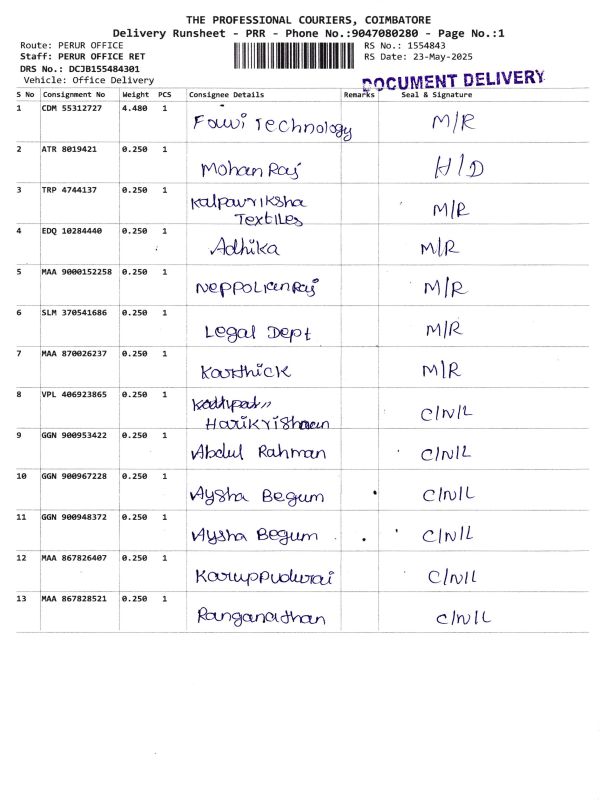 THE PROFESSIONAL COURIERS, COIMBATORE
Delivery Runsheet - PRR - Phone No.:9047080280 - Page No.:1
Route: PERUR OFFICE
RS No.: 1554843
Staff: PERUR OFFICE RET
RS Date: 23-May-2025
DRS No.: DCJB155484301
Vehicle: Office Delivery
DOCUMENT DELIVERY
S No Consignment No Weight PCS Consignee Details Remarks Seal & Signature
1 CDM 55312727 4.480 1 Fouvi Technology M/R
2 ATR 8019421 0.250 1 Mohan Raj H/D
3 TRP 4744137 0.250 1 Kalpavriksha
Textiles M/R
4 EDQ 10284440 0.250 1 Adhika M/R
5 MAA 9000152258 0.250 1 NeppolianRaj M/R
6 SLM 370541686 0.250 1 Legal Dept M/R
7 MAA 870026237 0.250 1 Karthick M/R
8 VPL 406923865 0.250 1
Harikrishnan C/N/L
9 GGN 900953422 0.250 1 Abdul Rahman C/N/L
10 GGN 900967228 0.250 1 Aysha Begum C/N/L
11 GGN 900948372 0.250 1 Aysha Begum C/N/L
12 MAA 867826407 0.250 1 Karuppudurai C/N/L
13 MAA 867828521 0.250 1 Ranganathan C/N/L